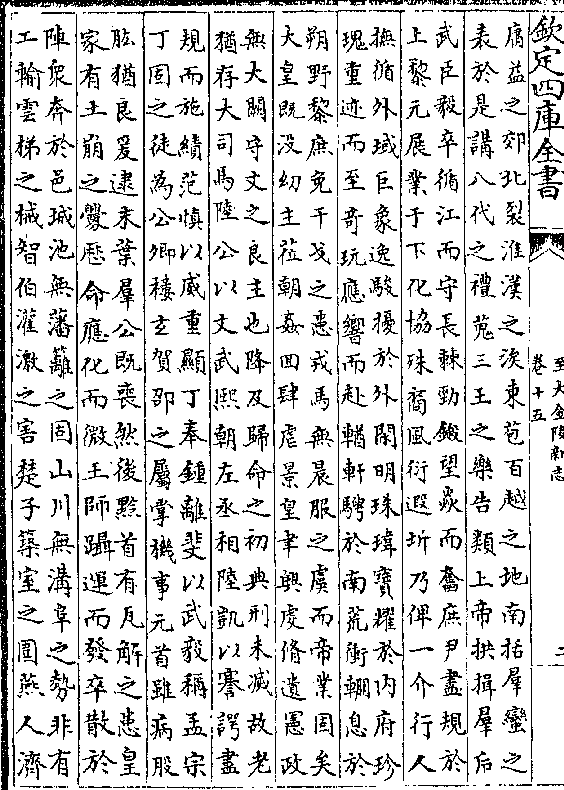 欽定四庫全書
至大金陵新志
卷十五
二
庸益之郊北裂淮漢之涘東苞百越之地南括羣蠻之
表於是講八代之禮蒐三王之樂告類上帝拱揖羣后
武臣毅卒循江而守長棘勁鎩望焱而奮庶尹盡規於
上黎元展業于下化協殊裔風衍遐圻乃俾一介行人
撫循外域巨象逸駿擾於外閑明珠瑋寶耀於内府珍
瑰重迹而至奇玩應響而赴輶軒騁於南荒衝輣息於
朔野黎庶免干戈之患戎馬無晨服之虞而帝業固矣
大皇既没幼主莅朝姦回肆虐景皇聿興虔脩遺憲政
無大闕守文之良主也降及歸命之初典刑未滅故老
猶存大司馬陸公以文武熙朝左丞相陸凱以謇諤盡
規而施績范慎以威重顯丁奉鍾離斐以武毅稱孟宗
丁固之徒為公卿樓玄賀邵之屬掌機事元首雖病股
肱猶良爰逮末葉羣公既喪然後黔首有瓦解之患皇
家有土崩之釁厯命應化而微王師躡運而發卒散於
陣衆奔於邑城池無藩籬之固山川無溝阜之勢非有
工輸雲梯之械智伯灌激之害楚子築室之圍燕人濟